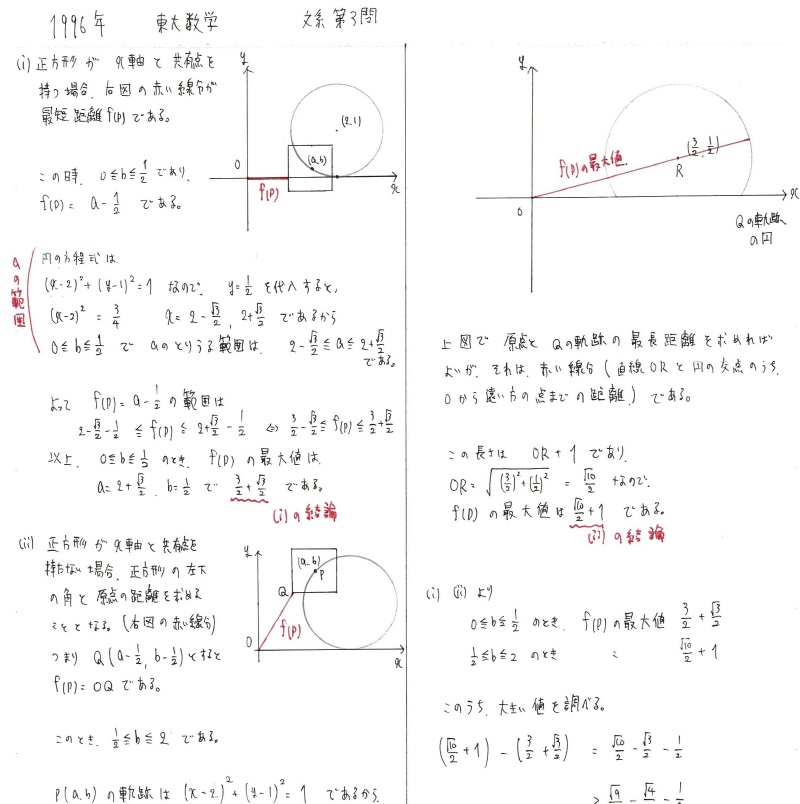 1996年 東大数学 文系 第3問
(i) 正方形が x軸と共有点を
持つ場合、右図の赤い線分が
最短距離f(P)である。
この時、0≦b≦1/2 であり、
f(P)= a-1/2 である。
y
(2,1)
(a,b)
0
f(P)
x
aの範囲
円の方程式は
(x-2)²+(y-1)²=1 なので、y=1/2 を代入すると、
(x-2)² = 3/4 x=2-√3/2, 2+√3/2 であるから
0≦b≦1/2 で aのとりうる範囲は、2-√3/2≦a≦2+√3/2
である。
よって f(P)=a-1/2 の範囲は
2-√3/2-1/2 ≦f(P)≦ 2+√3/2-1/2 ⇔ 3/2-√3/2≦f(P)≦3/2+√3/2
以上、0≦b≦1/2 のとき、f(P) の最大値は
a=2+√3/2, b=1/2 で 3/2+√3/2 である。
(i)の結論
(ii) 正方形がx軸と共有点を
持たない場合、正方形の左下
の角と原点の距離を求める
こととなる。(右図の赤い線分)
つまり Q(a-1/2, b-1/2)とすると
f(P)=OQ である。
y
(a,b)
P
Q
f(P)
0
x
このとき、1/2≦b≦2 である。
P(a,b) の軌跡は (x-2)²+(y-1)²=1 であるから、
y
f(P)の最大値
(3/2, 1/2)
R
0
x
Qの軌跡
の円
上図で 原点と Qの軌跡の最長距離を求めれば
よいが、それは、赤い線分(直線ORと円の交点のうち、
Oから遠い方の点までの距離)である。
この長さは OR+1 であり、
OR=√((3/2)²+(1/2)²) = √10/2 なので、
f(P)の最大値は √10/2+1 である。
(ii)の結論
(i) (ii) より
0≦b≦1/2 のとき、f(P)の最大値 3/2+√3/2
1/2≦b≦2 のとき 〃 √10/2+1
このうち、大きい値を調べる。
(√10/2+1)-(3/2+√3/2) = √10/2-√3/2-1/2
> √9/2-√4/2-1/2